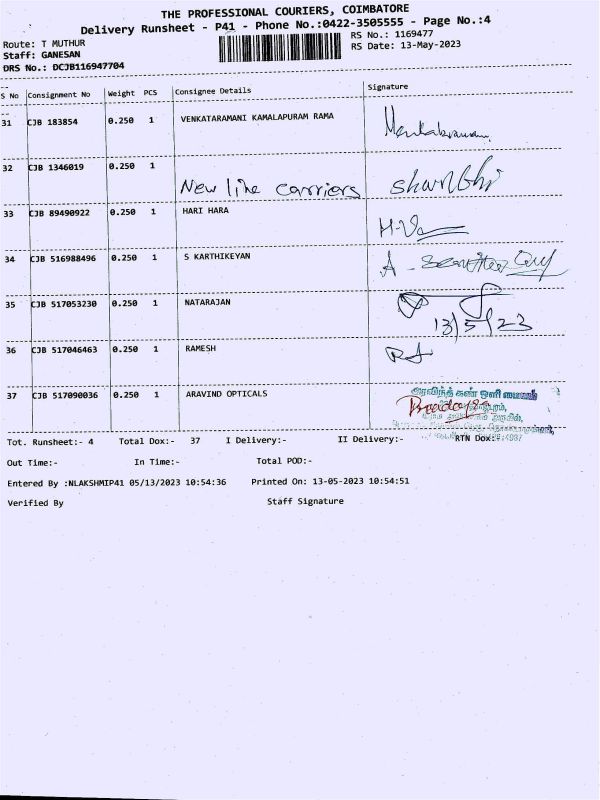 THE PROFESSIONAL COURIERS, COIMBATORE
Delivery Runsheet - P41 - Phone No.:0422-3505555 - Page No.:4
Route: T MUTHUR
RS No.: 1169477
Staff: GANESAN
RS Date: 13-May-2023
DRS No.: DCJB116947704
S No Consignment No Weight PCS Consignee Details Signature
31 CJB 183854 0.250 1 VENKATARAMANI KAMALAPURAM RAMA
32 CJB 1346019 0.250 1
New line carriers
33 CJB 89490922 0.250 1 HARI HARA
34 CJB 516988496 0.250 1 S KARTHIKEYAN
35 CJB 517053230 0.250 1 NATARAJAN
13/5/23
36 CJB 517046463 0.250 1 RAMESH
37 CJB 517090036 0.250 1 ARAVIND OPTICALS
அரவிந்த் கண் ஒளி மையம்
Tot. Runsheet:- 4 Total Dox:- 37 I Delivery:- II Delivery:- RTN Dox:-
Out Time:- In Time:- Total POD:-
Entered By :NLAKSHMIP41 05/13/2023 10:54:36 Printed On: 13-05-2023 10:54:51
Verified By Staff Signature